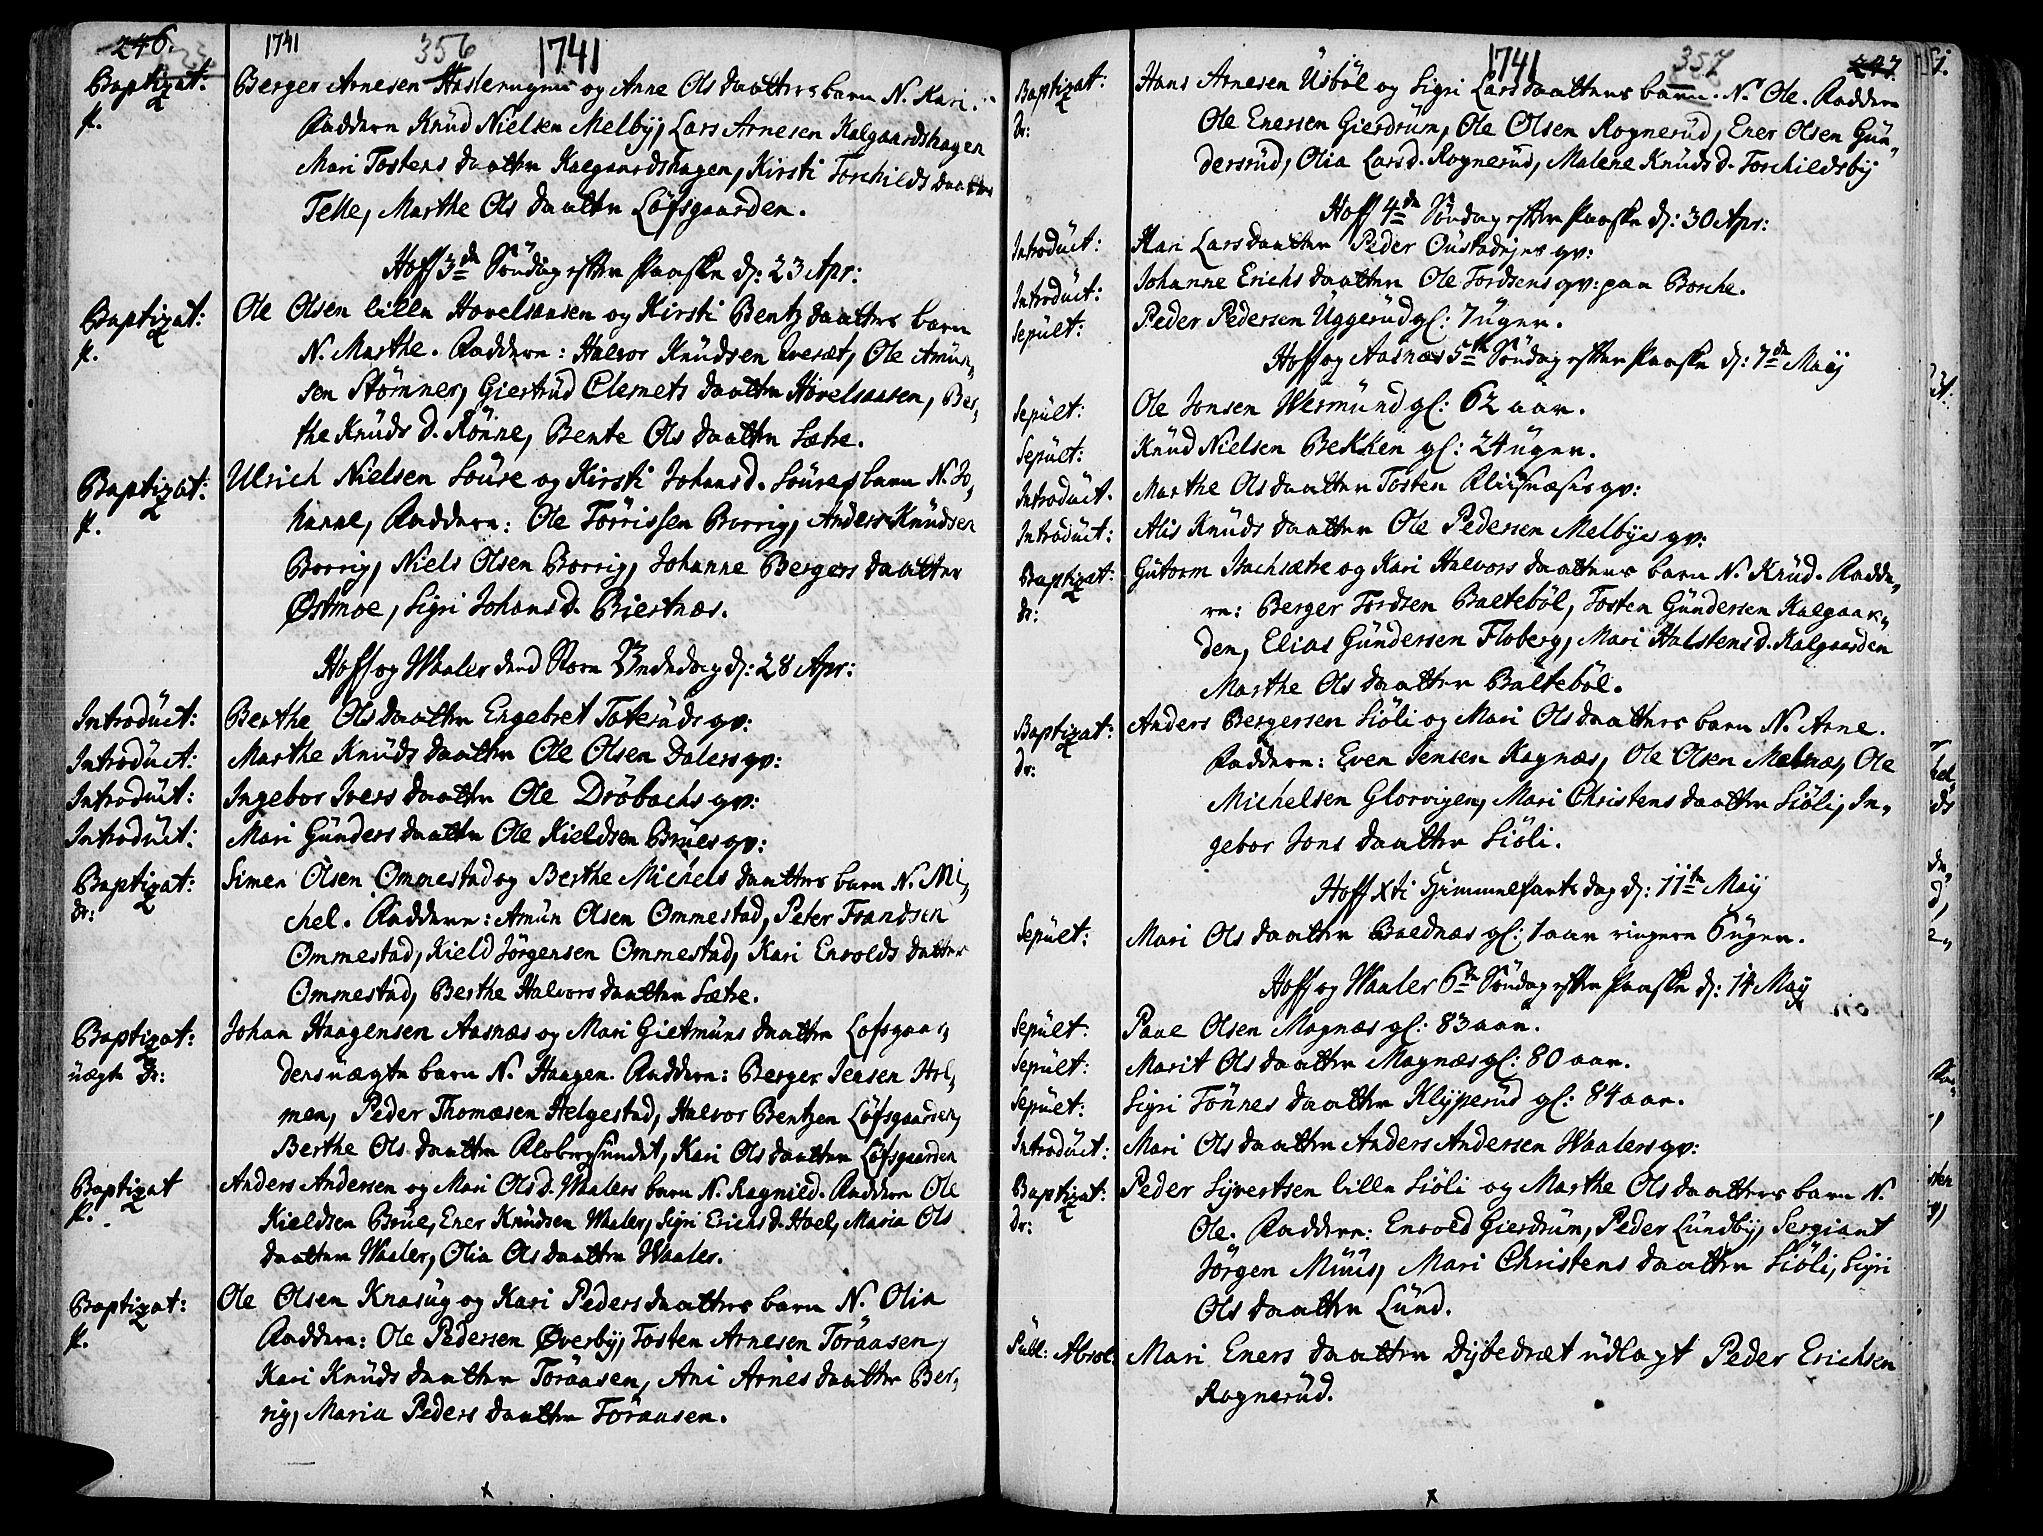 246.
1741
356
1741
Baptizat: Berger Arnesen Haslerugns og Anne Olsdaatters barn N. Kari.
p. Faddere Knud Nielsen Melby, Lars Arnesen Kalgaardshagen
Mari Tostens daatter Kalgaardshagen, Kirsti Torchilds daatter
Telle, Marthe Olsdaatter Løfsgaarden.
Hoff 3de Söndag efter Paaske d: 23 Apr:
Baptizat: Ole Olsen lille Hovelsaasen og Kirsti Bentz daatters barn
p. N. Marthe. Faddere: Halvor Knudsen Tveræt, Ole Amün„
sen Stømner, Giertrüd Clemets daatter Hovelsaasen, Ber„
the Knüds d. Rönne, Bente Olsdaatter Sætre.
Baptizat: Ulrich Nielsen Soüre og Kirsti Johansd. Soüres barn N. Jo„
p. hanne, Faddere: Ole Törrissen Borrig, Anders Knüdsen
Borrig, Niels Olsen Borrig, Johanne Bergers daatter
Østmoe, Sigri Johansd. Briertnæs.
Hoff og Waaler dend Store Bededag d: 28 Apr:
Introdüct: Berthe Olsdaatter Engebret Toterüds qv:
Introdüct: Marthe Knüds daatter Ole Olsen Dalers qv:
Introdüct: Ingebor Ivers daatter Ole Dröbachs qv:
Introdüct: Mari Günders daatter Ole Kieldsen Brües qv:
Baptizat: Simen Olsen Ommestad og Berthe Michels daatters barn N. Mi„
dr: chel. Faddere: Amün Olsen Ommestad, Peter Frandsen
Ommestad, Kield Jörgensen Ommestad, Kari Envolds datter
Ommestad, Berthe Halvors daatter Sætre.
Baptizat: Johan Haagensen Aasnæs og Mari Gietmüns daatter Løfsgaar„
üægte Dr: dens üægte barn N. Haagen. Faddere: Berger Jensen Hol„
men, Peder Thomæsen Helgestad, Halvor Bentzen Løfsgaarden,
Berthe Olsdaatter Klobergsundet, Kari Olsdaatter Løfsgaarden
Baptizat Anders Andersen og Mari Olsd. Waalers barn N. Ragnild. Faddere Ole
p. Kieldsen Brüe, Ener Knüdsen Waaler, Sigri Erichsd. Hoel, Maria Ols
daatter Waaler, Olia Olsdaatter Waaler.
Baptizat: Ole Olsen Knasüg og Kari Pedersdaatters barn N. Olia
p. Faddere: Ole Pedersen Øverby, Tosten Arnesen Toraasen,
Kari Knüds daatter Toraasen, Ani Arnes daatter Ber„
rig, Maria Peders daatter Toraasen.
1741
357
247.
Baptizat: Hans Arnesen Üsböl og Sigri Larsdaatters barn. N. Ole. Faddere
Dr: Ole Enersen Gierdrüm, Ole Olsen Rognerüd, Ener Olsen Gün„
dersrüd, Olia Larsd. Rognerüd, Malene Knüdsd. Torchildsby
Hoff 4de Söndag efter Paaske d: 30 Apr:
Introdüct: Kari Larsdaatter Peder Oustadejes qv:
Introdüct: Johanne Erichs daatter Ole Tordsens qv: paa Borche.
Sepült: Peder Pedersen Üggerüd gl: 7 üger.
Hoff og Aasnæs 5te Söndag efter Paaske d: 7de Maij
Sepült: Ole Jonsen Wermünd gl: 62 aar.
Sepült: Knüd Nielsen Bekken gl: 24 üger.
Introdüct. Marthe Olsdaatter Tosten Kliisnæses qv:
Introdüct: Alis Knüds daatter Ole Pedersen Melbyes qv:
Baptizat: Gütorm Bachsætre og Kari Halvors daatters barn N. Knüd. Fadde„
dr: re: Berger Tordsen Balteböl, Tosten Gündersen Kalgaar„
den, Elias Gündersen Floberg, Mari Halstensd. Kalgaarden
Marthe Olsdaatter Balteböl.
Baptizat: Anders Bergersen Siöli og Mari Olsdaatters barn N. Arne.
Dr: Faddere: Even Jensen Kagnæs, Ole Olsen Melnæs, Ole
Michelsen Glorvigen, Mari Christens daatter Siöli, In„
gebor Jons daatter Siöli.
Hoff Xti Himmelfarts dag d: 11te Maij
Sepült: Mari Olsdaatter Baldnæs gl: 1 aar ringere 6 üger.
Hoff og Waaler 6te Söndag efter Paaske d: 14 Maij
Sepült: Paae Olsen Magnæs gl: 83 aar.
Sepült: Marit Olsdaatter Magnæs gl: 80 aar.
Sepült: Sigri Tönnes daatter Klyperüd gl: 84 aar.
Introdüct: Mari Olsdaatter Anders Andersen Waalers qv:
Baptizat: Peder Syvertsen lille Siöli og Marthe Olsdaatters barn N.
Dr: Ole. Faddere: Envold Gierdrüm, Peder Lündby, Sergiant
Jörgen Müüs, Mari Christens daatter Siöli, Sigri
Olsdaatter Lünd.
Publ: Absol: Mari Eners daatter Dybedræt üdlagt Peder Erichsen
Rognerüd.